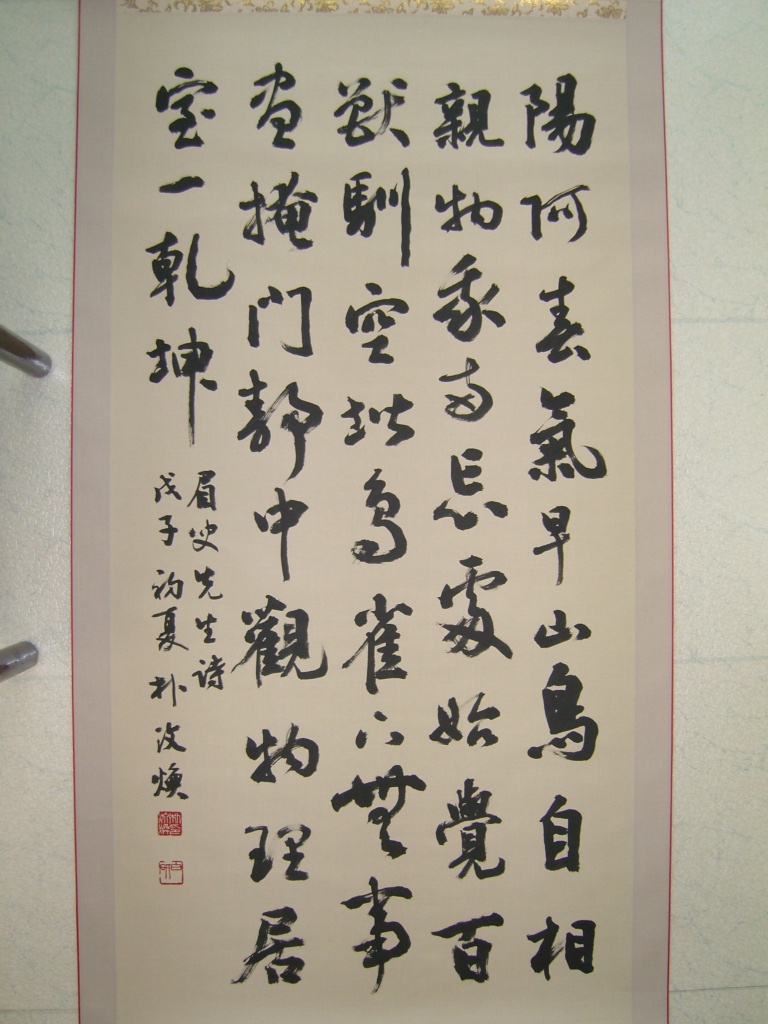 陽阿春氣早山鳥自相
親物我兩忘處始覺百
獸馴空階鳥雀下無事
晝掩門靜中觀物理居
室一乾坤
眉叟先生詩
戊子初夏 朴汶煥